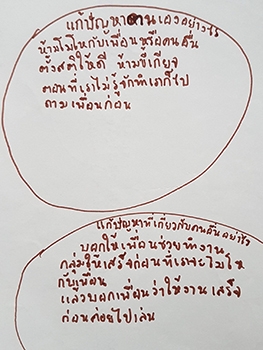 แก้ปัญหาตนเองอย่างไร
ห้ามโมโหกับเพื่อนหรือคนอื่น
ตั้งสติให้ดี ห้ามขี้เกียจ
ตอนที่เราไม่รู้จักทำเราก็ไป
ถามเพื่อนก่อน
แก้ปัญหาที่เกี่ยวกับคนอื่นอย่างไร
บอกให้เพื่อนช่วยทำงาน
กลุ่มให้เสร็จก่อนที่เราจะโมโห
กับเพื่อน
แล้วบอกเพื่อนว่าให้งานเสร็จ
ก่อนค่อยไปเล่น